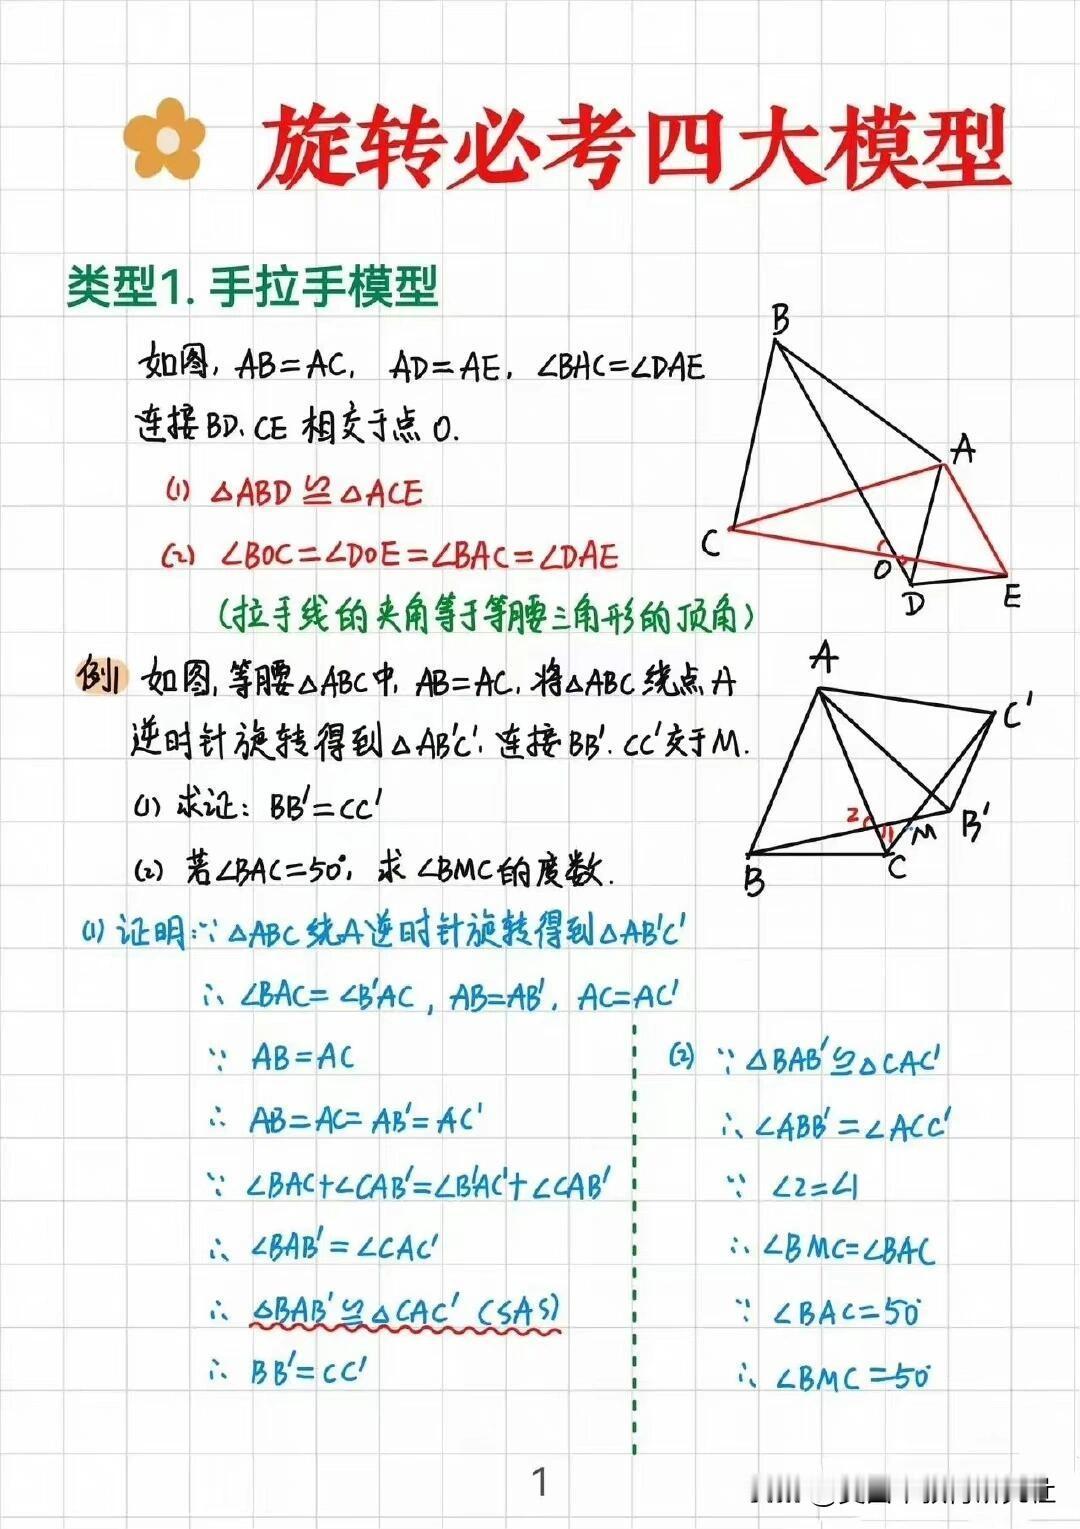 旋转必考四大模型
类型1. 手拉手模型
如图, AB=AC, AD=AE, ∠BAC=∠DAE
连接BD、CE 相交于点O.
(1) △ABD≌△ACE
(2) ∠BOC=∠DOE=∠BAC=∠DAE
(拉手线的夹角等于等腰三角形的顶角)
B
A
C
O
D
E
例1 如图,等腰△ABC中, AB=AC, 将△ABC绕点A
逆时针旋转得到△AB'C', 连接BB'、CC'交于M.
(1) 求证: BB'=CC'
(2) 若∠BAC=50°, 求∠BMC的度数.
A
C'
2
1
M
B'
B
C
(1) 证明:∵△ABC绕A逆时针旋转得到△AB'C'
∴ ∠BAC=∠B'AC, AB=AB', AC=AC'
∵ AB=AC
∴ AB=AC=AB'=AC'
∵ ∠BAC+∠CAB'=∠B'AC'+∠CAB'
∴ ∠BAB'=∠CAC'
∴ △BAB'≌△CAC' (SAS)
∴ BB'=CC'
(2) ∵ △BAB'≌△CAC'
∴ ∠ABB'=∠ACC'
∵ ∠2=∠1
∴ ∠BMC=∠BAC
∵ ∠BAC=50°
∴ ∠BMC=50°
1